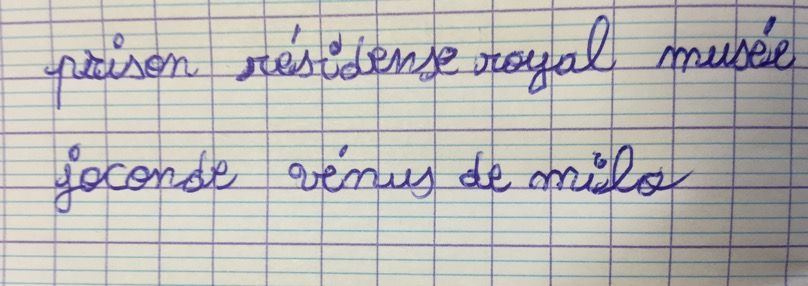 prison résidense royal musée
joconde vénus de milo